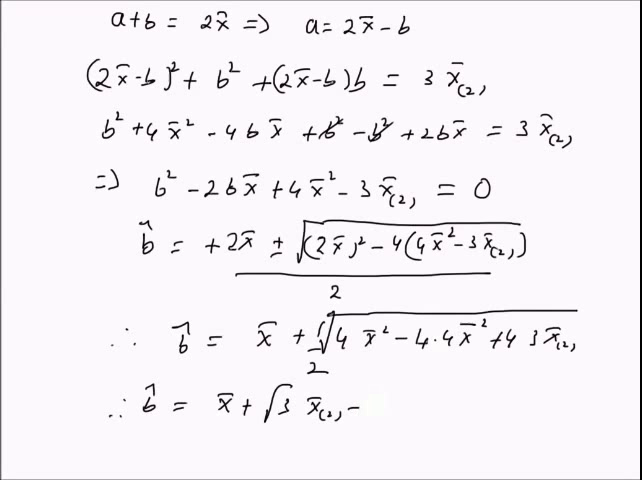 a+b = 2x̄ => a = 2x̄ - b
(2x̄-b)² + b² + (2x̄-b)b = 3 x̄₍₂₎
b² + 4x̄² - 4bx̄ + b² - b² + 2bx̄ = 3 x̄₍₂₎
=> b² - 2bx̄ + 4x̄² - 3x̄₍₂₎ = 0
b̂ = +2x̄ ± √((2x̄)² - 4(4x̄² - 3x̄₍₂₎)) / 2
∴ b̂ = x̄ + 1/2 √(4x̄² - 4·4x̄² + 4 3x̄₍₂₎
∴ b̂ = x̄ + √3 x̄₍₂₎ -